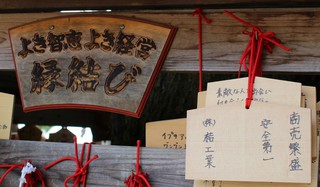 よき智恵よき経営
縁結び
商売繁盛
安全第一
㈱緒工業
素敵な人と出会い